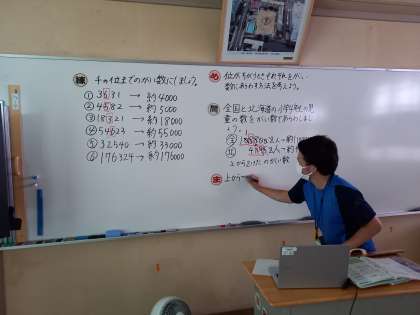 練 千の位までのがい数にしましょう。
① 3631 → 約4000
② 4582 → 約5000
③ 18321 → 約18000
④ 54623 → 約55000
⑤ 32540 → 約33000
⑥ 176324 → 約176000
め 位がちがうときそれぞれを
数にあらわす方法を考えよう。
問 全国と北海道の小学校の児
童の数をがい数であらわしまし
ょう。
人→約
人→約
上から2けたのがい数
主 上から